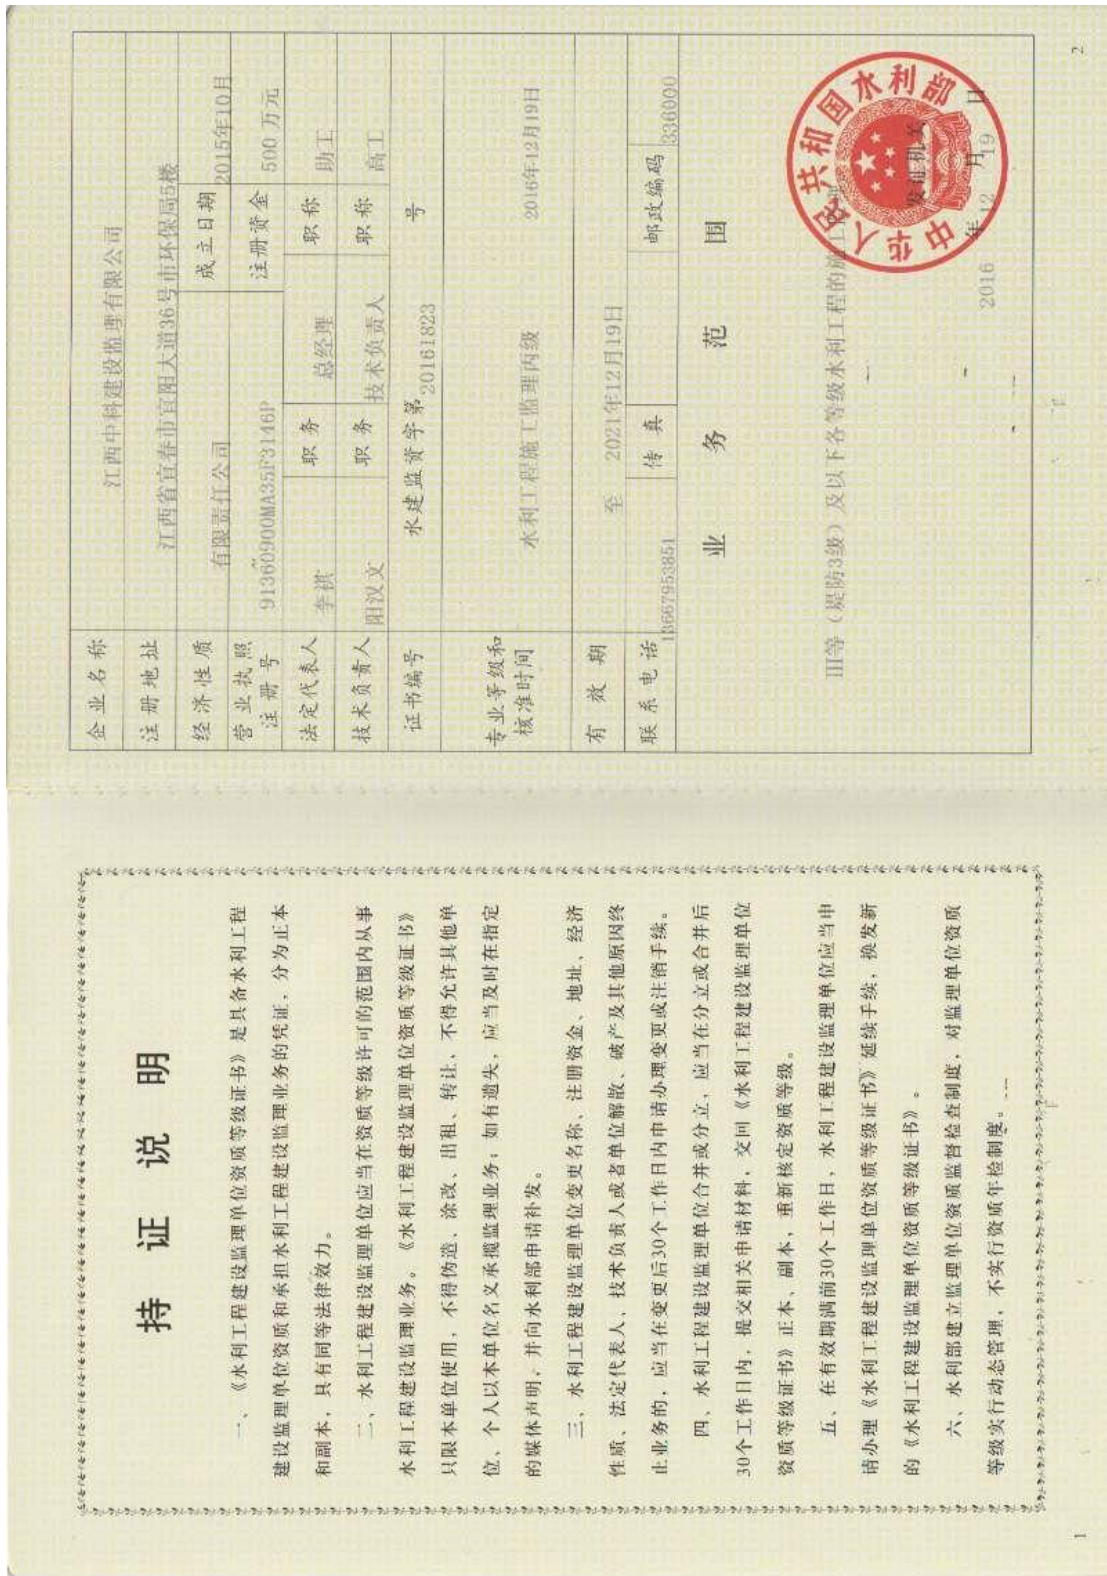 持证说明
一、《水利工程建设监理单位资质等级证书》是具备水利工程
建设监理单位资质和承担水利工程建设监理业务的凭证，分为正本
和副本，具有同等法律效力。
二、水利工程建设监理单位应当在资质等级许可的范围内从事
水利工程建设监理业务。《水利工程建设监理单位资质等级证书》
只限本单位使用，不得伪造、涂改、出租、转让，不得允许其他单
位、个人以本单位名义承揽监理业务；如有遗失，应当及时在指定
的媒体声明，并向水利部申请补发。
三、水利工程建设监理单位变更名称、注册资金、地址、经济
性质、法定代表人、技术负责人或者单位解散、破产及其他原因终
止业务的，应当在变更后30个工作日内申请办理变更或注销手续。
四、水利工程建设监理单位合并或分立，应当在分立或合并后
30个工作日内，提交相关申请材料，交回《水利工程建设监理单位
资质等级证书》正本、副本，重新核定资质等级。
五、在有效期满前30个工作日，水利工程建设监理单位应当申
请办理《水利工程建设监理单位资质等级证书》延续手续，换发新
的《水利工程建设监理单位资质等级证书》。
六、水利部建立监理单位资质监督检查制度，对监理单位资质
等级实行动态管理，不实行资质年检制度。
1
企业名称 江西中科建设监理有限公司
注册地址 江西省宜春市宜阳大道36号市环保局5楼
经济性质 有限责任公司 成立日期 2015年10月
营业执照注册号 91360900MA35F3146P 注册资金 500 万元
法定代表人 李祺 职务 总经理 职称 助工
技术负责人 阳汉文 职务 技术负责人 职称 高工
证书编号 水建监资字第 20161823 号
专业等级和核准时间 水利工程施工监理丙级 2016年12月19日
有效期 至 2021年12月19日
联系电话 13667953851 传真 邮政编码 336000
业务范围
III等（堤防3级）及以下各等级水利工程的施工
中华人民共和国水利部
发证机关
2016 年 12 月 19 日
2